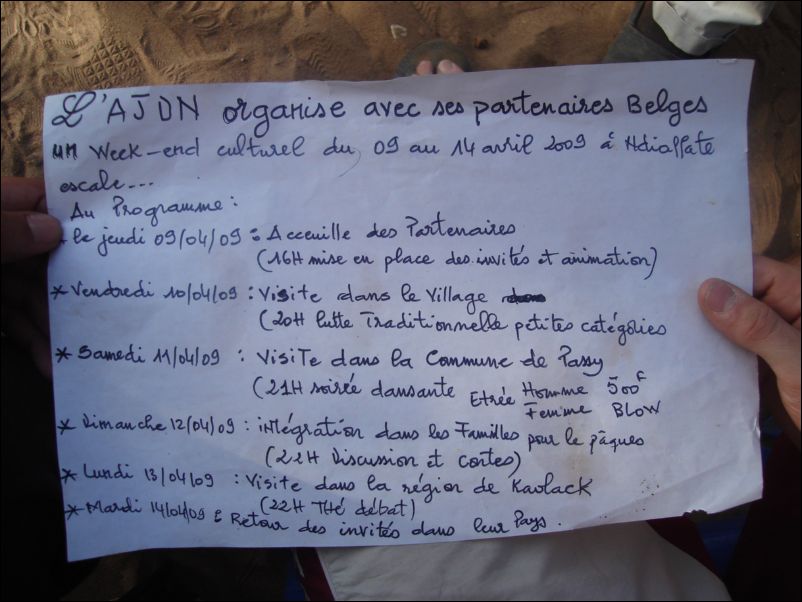 L'AJDN organise avec ses partenaires Belges
un Week-end culturel du 09 au 14 avril 2009 à Ndiaffate
escale...
Au Programme :
* le jeudi 09/04/09 : Acceuille des Partenaires
(16H mise en place des invités et animation)
* Vendredi 10/04/09 : Visite dans le Village
(20H lutte Traditionnelle petites catégories
* Samedi 11/04/09 : Visite dans la Commune de Passy
(21H soirée dansante Etrée Homme 500F
Femme BLOW
* Dimanche 12/04/09 : intégration dans les Familles pour le pâques
(22H Discussion et contes)
* Lundi 13/04/09 : Visite dans la région de Kaolack
(22H Thé débat)
* Mardi 14/04/09 : Retour des invités dans leur Pays.